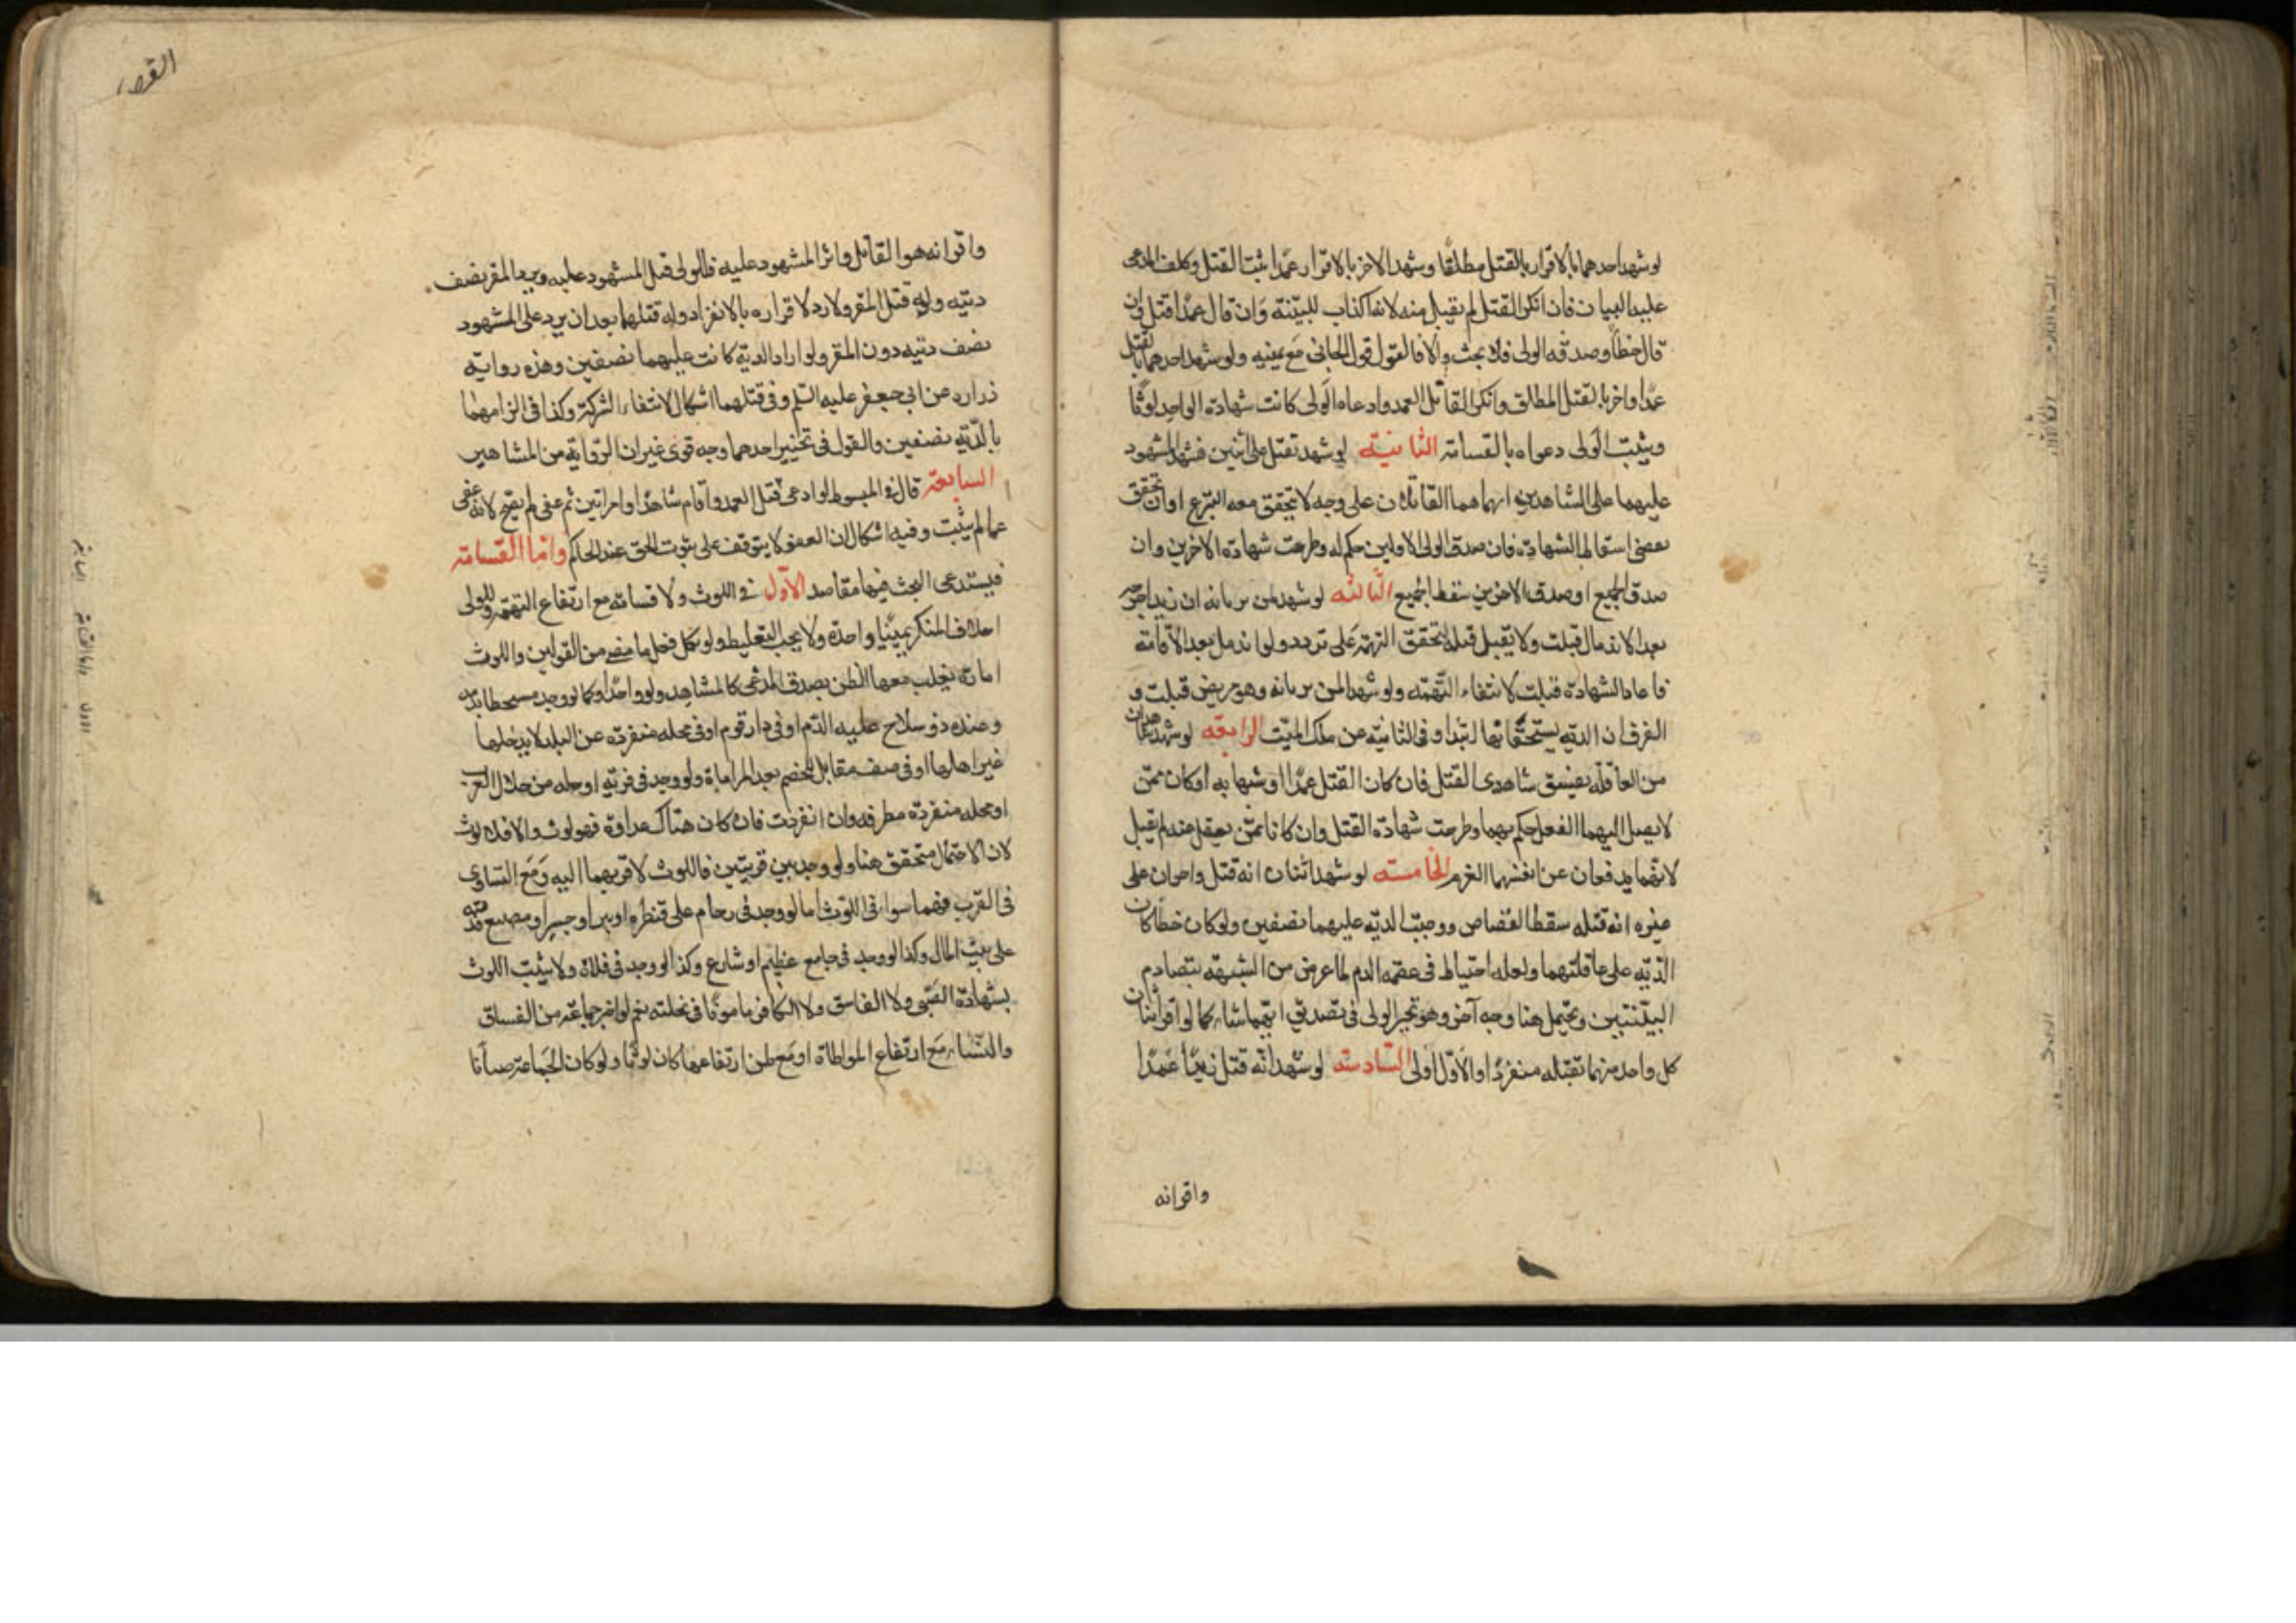 لو شهد احدهما بالاقرار بالقتل مطلقا وشهد الاخر بالاقرار عمدا ثبت القتل وكلف المدعى
عليه البيان فان انكر القتل لم يقبل منه لانه اكذاب للبينة وان قال عمدا قتل وان
قال خطأ وصدقه الولى فلا بحث والا فالقول قول الجانى مع يمينه ولو شهد احدهما بالقتل
عمدا واخر بالقتل المطلق وانكر القاتل العمد وادعاه الولى كانت شهادة الواحد لوثا
ويثبت الولى دعواه بالقسامة الثانية لو شهد بقتل على اثنين فشهد المشهود
عليهما على الشاهدين انهما هما القاتلان على وجه لا يتحقق معه التبرع او ان تحقق
بعضى اسقاط الشهادة فان صدق الولى الاولين حكم له وطرحت شهادة الاخرين وان
صدق الجميع او صدق الاخرين سقط الجميع الثالثه لو شهد لمن يرثانه ان زيدا جرحه
بعد الاندمال قبلت ولا تقبل قبله لتحقق التهمة على تردد ولو اندمل بعد الاقامة
فاعاد الشهادة قبلت لانتفاء التهمة ولو شهدا لمن يرثانه وهو مريض قبلت و
الفرق ان الدية يستحقانها ابتدا وفى الثانية عن ملك الميت الرابعه لو شهد شاهدان
من العاقله بفسق شاهدى القتل فان كان القتل عمدا او شبها به او كان ممن
لا يصل اليهما العقل حكم بهما وطرحت شهادة القتل وان كانا ممن يعقل عنه لم يقبل
لانهما يدفعان عن انفسهما الغرم الخامسه لو شهد اثنان انه قتل واخران على
غيره انه قتله سقط القصاص ووجبت الديه عليهما نصفين ولو كان خطأ كان
الديه على عاقلتهما ولعله احتياط فى عصمة الدم لما عرض من الشبهة بتصادم
البينتين ويحتمل هنا وجه آخر وهو تخير الولى فى تصديق ايهما شاء كما لو اقر اثنان
كل واحد منهما بقتله منفردا والاول اولى السادسه لو شهد انه قتل زيدا عمدا
واقر انه
القصا
واقر انه هو القاتل وابرأ المشهود عليه فللولى قتل المشهود عليه ويرد المقر نصف
ديته وله قتل المقر ولا رد لاقراره بالانفراد وله قتلهما بعد ان يرد على المشهود
نصف ديته دون المقر ولو اراد الدية كانت عليهما نصفين وهذه رواية
زراره عن ابى جعفر عليه السلم وفى قتلهما اشكال لانتفاء الشركة وكذا فى الزامهما
بالدية نصفين والقول فى تخيير احدهما وجه قوى غير ان الرواية من المشاهير
السابعة قال فى المبسوط لو ادعى قتل العمد واقام شاهدا وامراتين ثم عفى لم يصح لانه عفى
عما لم يثبت وفيه اشكال ان العفو لا يتوقف على ثبوت الحق عند الحاكم واما القسامة
فيستدعى البحث فيها مقاصد الاول فى اللوث ولا قسامة مع ارتفاع التهمة وللولى
احلاف المنكر يمينا واحدة ولا يجب التغليظ ولو نكل فعل ما مضى من القولين واللوث
امارة يغلب معها الظن بصدق المدعى كالشاهد ولو واحدا وكما لو وجد متشحطا بدمه
وعنده ذو سلاح عليه الدم او فى دار قوم او فى محلة منفردة عن البلد لا يدخلها
غير اهلها او فى صف مقابل للخصم بعد المراماة ولو وجد فى قرية او حله من حلال العرب
او محله منفردة مطرقه وان انفردت فان كان هناك عداوة فهو لوث والا فلا لوث
لان الاحتمال متحقق هنا ولو وجد بين قريتين فاللوث لاقربهما اليه ومع التساوى
فى القرب فهما سواء فى اللوث اما لو وجد فى زحام على قنطره او بير او جسر او مصنع فديته
على بيت المال وكذا لو وجد فى جامع عظيم او شارع وكذا لو وجد فى فلاة ولا يثبت اللوث
بشهادة الصبى ولا الفاسق ولا الكافر مامونا فى نحلته نعم لو اخبر جماعة من الفساق
والنساء مع ارتفاع المواطاة او مع ظن ارتفاعها كان لوثا ولو كان الجماعة صبيانا